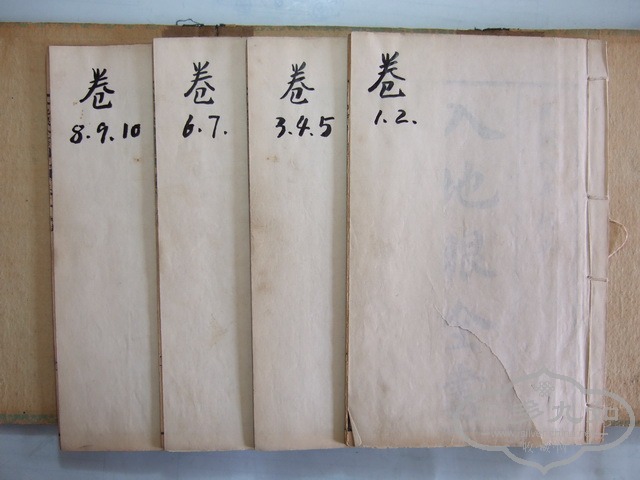 卷
8.9.10
卷
6.7.
卷
3.4.5
卷
1.2.
入地眼全書